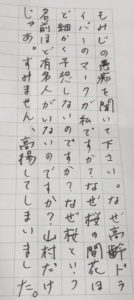 もみじの愚痴を聞いて下さい。なぜ高齢ドラ
イバーのマークが私ですか？なぜ桜の開花ほ
ど細かく予想しないのですか？なぜ桜という
名前ほど有名人がいないのですか？山村だけ
じゃあ。すみません、高揚してしまいました。